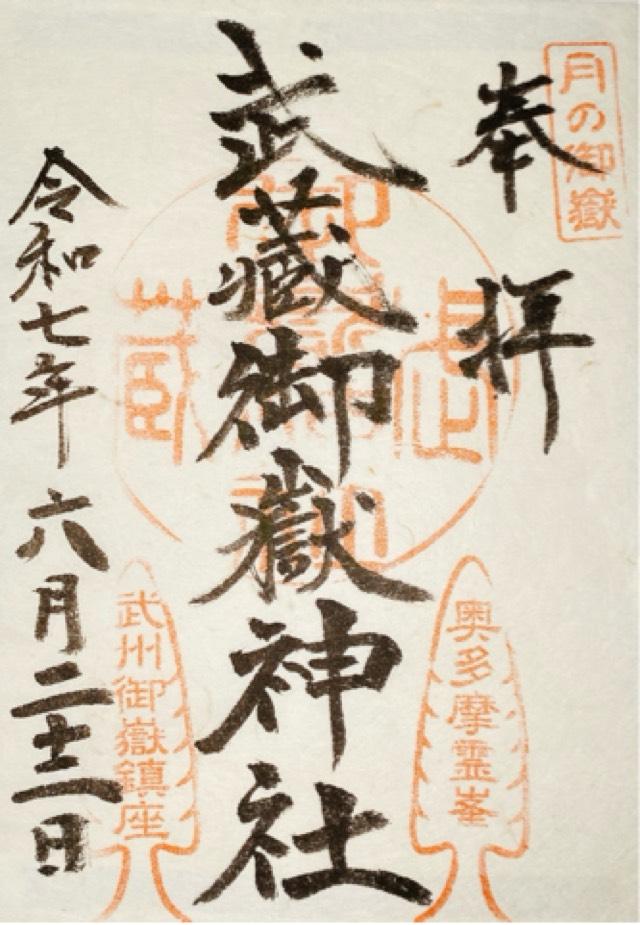 月の御嶽
奉拝
武藏御嶽神社
奥多摩霊峯
武州御嶽鎮座
令和七年六月二十二日